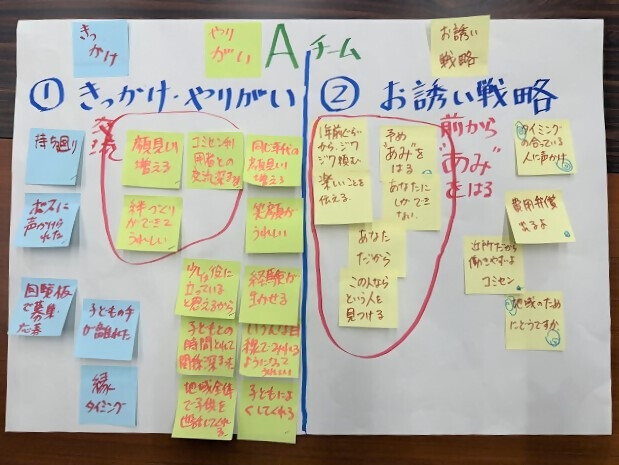 きっ
かけ
やり
がい
Aチーム
お誘い
戦略
① きっかけ・やりがい
② お誘い戦略
交流
持ち回り
ボスに
声かけられた
回覧板
で募集
応募
子どもの手
が離れた
縁
タイミング
顔見知り
増える
コミセンが
交流深まる
絆づくり
ができて
うれしい
同じ年代の
顔見知り
増える
笑顔が
うれしい
少しは役に
立っている
と思えるから
経験が
生かせる
子どもとの
時間とれて
関係深まった
いろんな目
線でみれる
ようになって
うれしい
地域全体
で子供を
世話してくれる
子どもによ
くしてくれる
1年前ぐらい
から、ジワ
ジワ頼む
楽しいことを
伝える。
予め
"あみ"を
はる
あなたに
しかでき
ない。
あなた
だから
この人なら
という人を
見つける
前から
"あみ"
をはる
タイミング
の合っている
人に声かけ
費用弁償
出るよ
近所だから
働きやすいよ
コミセン
地域のため
にどうですか